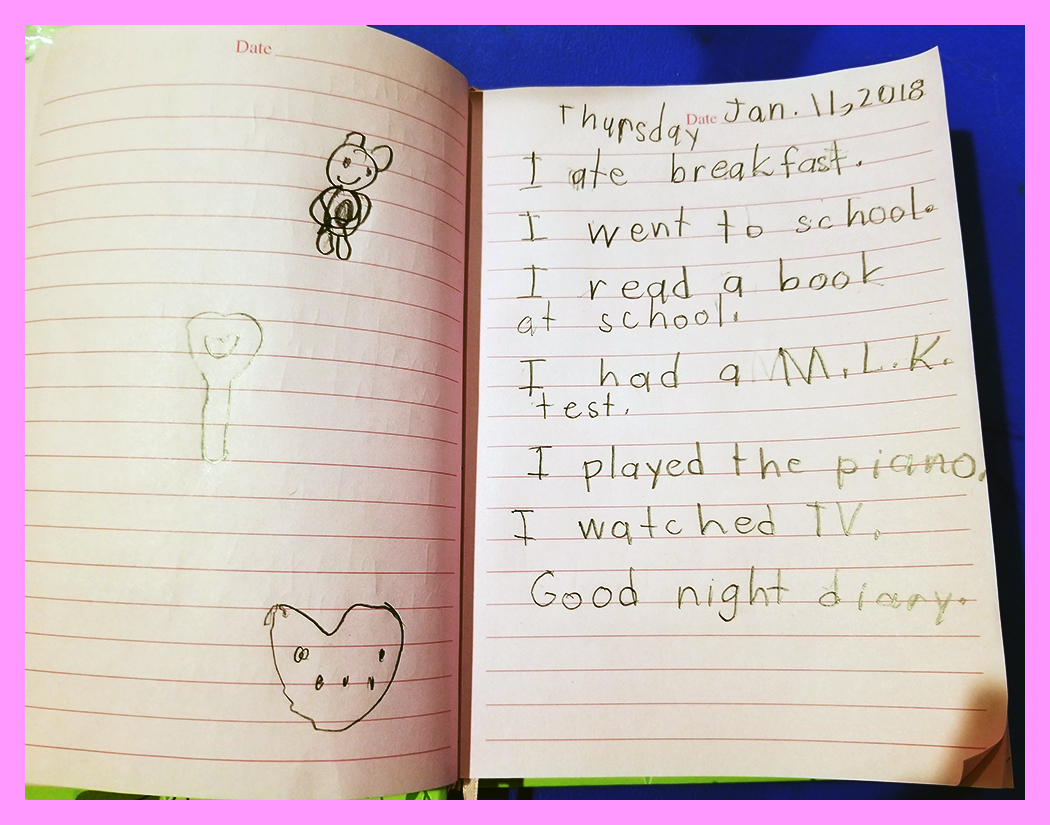 Date
Thursday Date Jan. 11, 2018
I ate breakfast.
I went to school.
I read a book
at school.
I had a M.L.K.
test.
I played the piano.
I watched TV.
Good night diary.